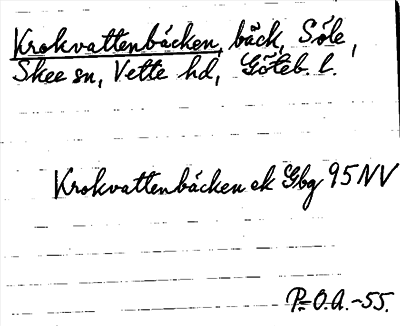 Krokvattenbäcken, bäck, Söle,
Skee sn, Vette hd, Göteb. l.
Krokvattenbäcken ek Gbg 95 NV
P.O.A. -55.